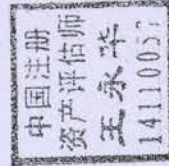 中国注册
资产评估师
王永华
14110057